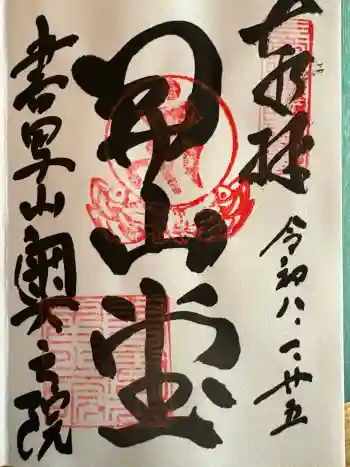 奉拝
令和八.一.廿五
開山堂
書写山奥之院